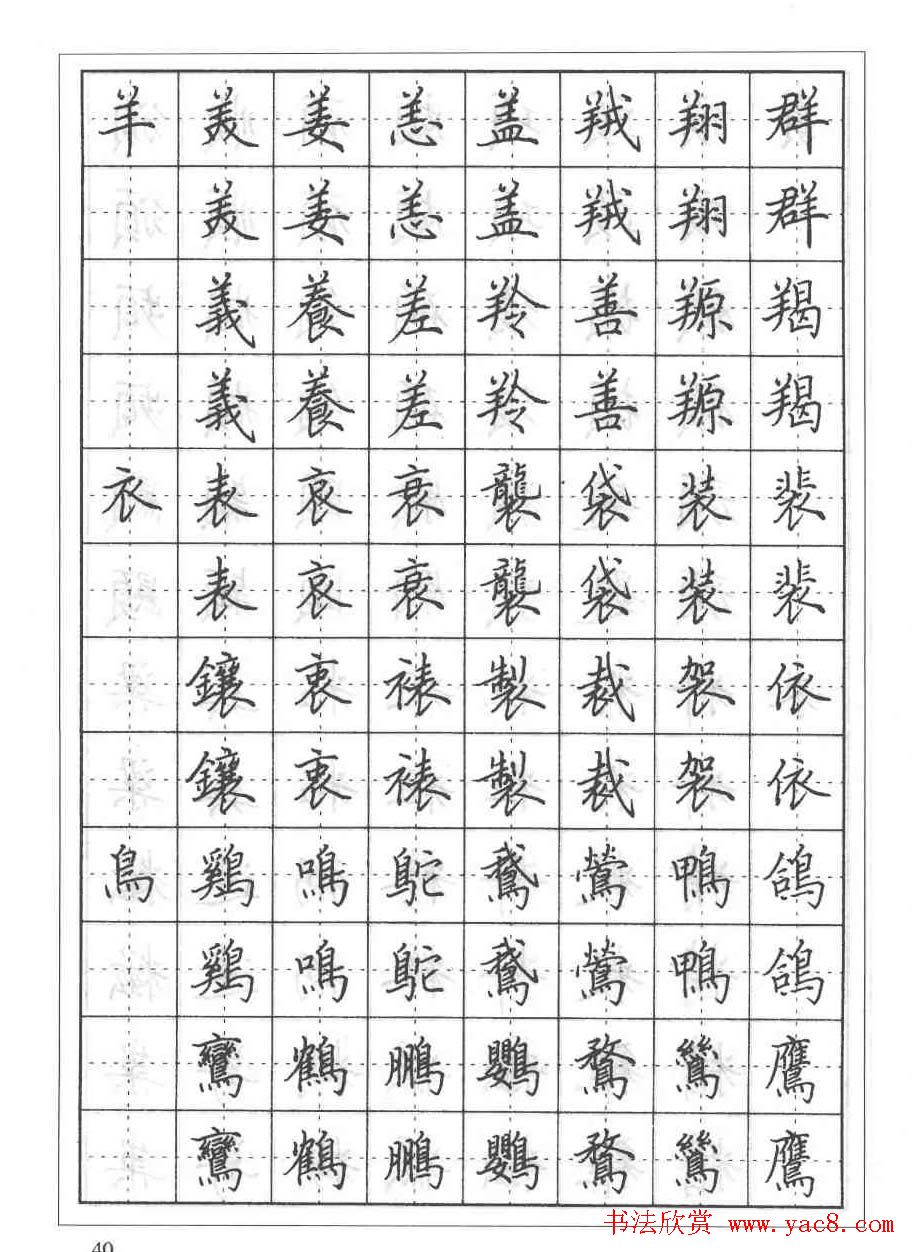 羊美姜恙盖羢翔群
美姜恙盖羢翔群
義養差羚善羱羯
義養差羚善羱羯
衣表哀衰襲袋装裴
表哀衰襲袋装裴
鑲衷裱製裁袈依
鑲衷裱製裁袈依
鳥鷄鳴鴕鵞鶯鴨鴿
鷄鳴鴕鵞鶯鴨鴿
鸞鶴鵬鸚鶩鷥鷹
鸞鶴鵬鸚鶩鷥鷹
书法欣赏 www.yac8.com
40